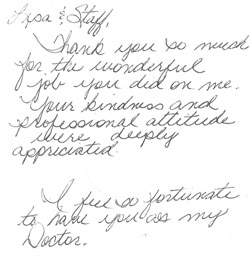 Lisa & Staff,
Thank you so much
for the wonderful
job you did on me.
Your kindness and
professional attitude
were deeply
appreciated.
I feel so fortunate
to have you as my
Doctor.